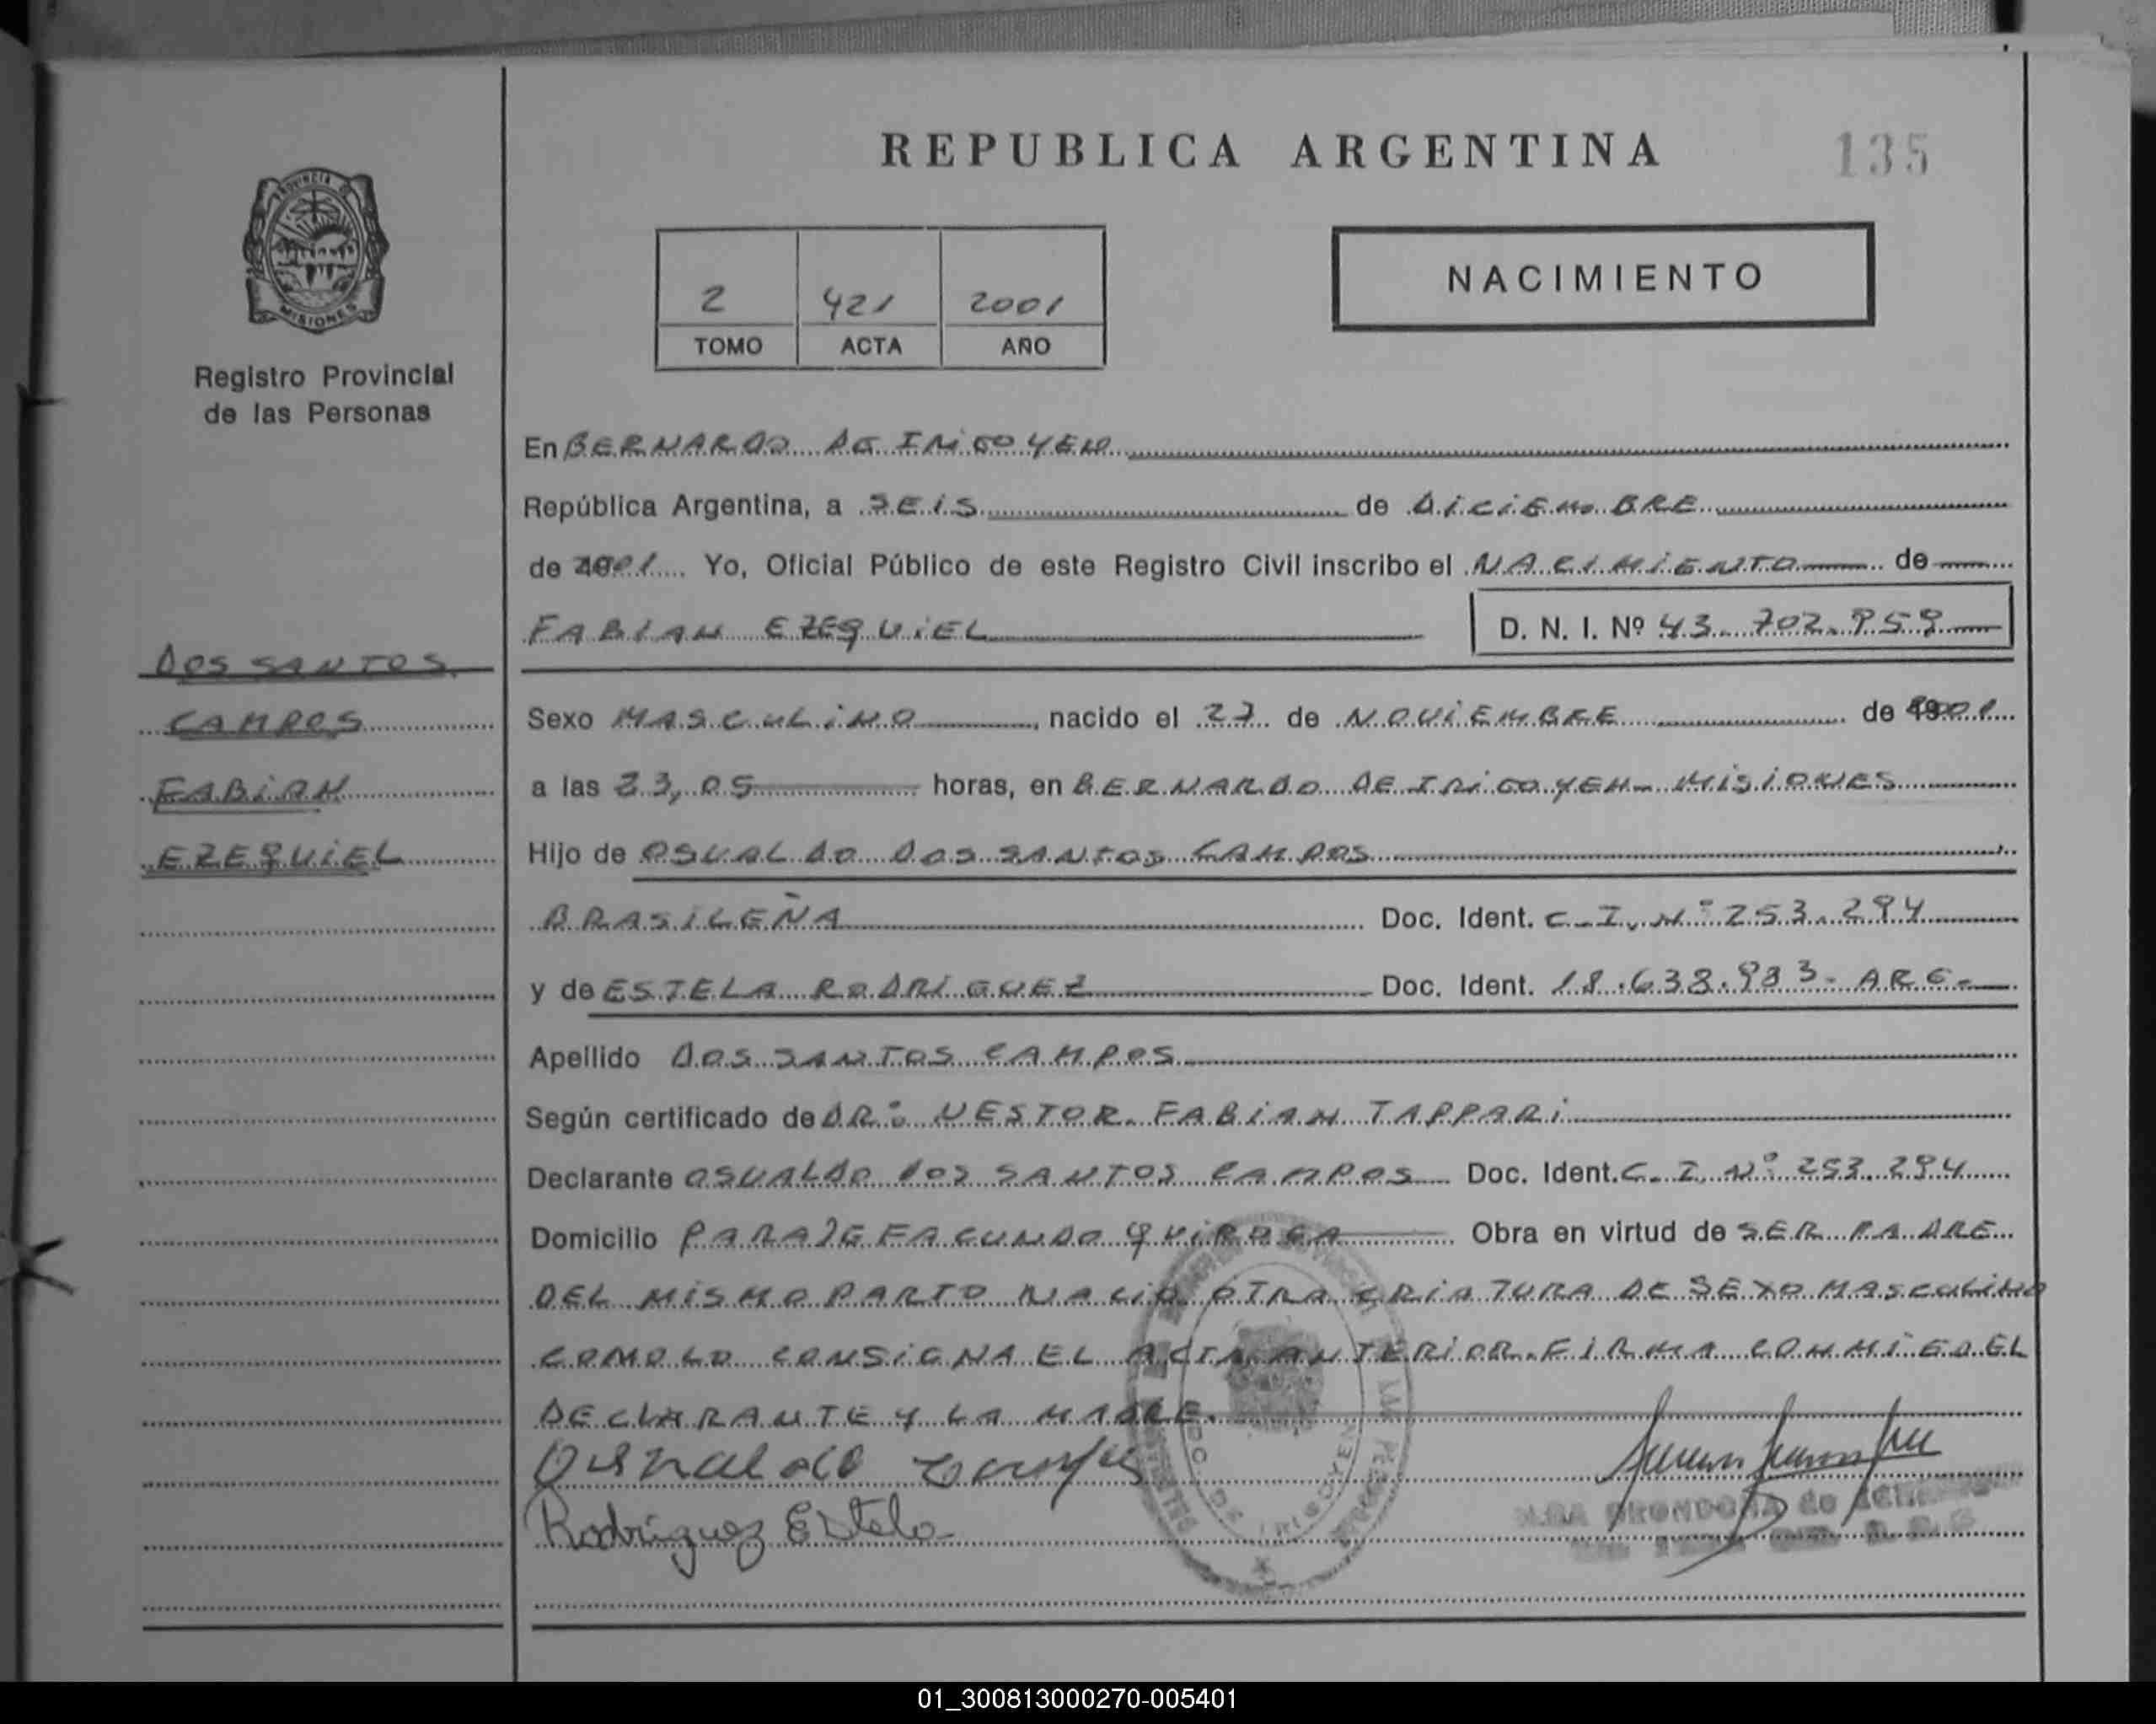 REPUBLICA ARGENTINA
135
PROVINCIA DE
MISIONES
Registro Provincial
de las Personas
2 421 2001
TOMO ACTA AÑO
NACIMIENTO
En BERNARDO DE IRIGOYEN
República Argentina, a SEIS de DICIEMBRE
de 2001 Yo, Oficial Público de este Registro Civil inscribo el NACIMIENTO de
FABIAN EZEQUIEL D. N. I. Nº 43.702.959
DOS SANTOS
CAMPOS
FABIAN
EZEQUIEL
Sexo MASCULINO, nacido el 27 de NOVIEMBRE de 2001
a las 23,05 horas, en BERNARDO DE IRIGOYEN - MISIONES
Hijo de OSVALDO DOS SANTOS CAMPOS
BRASILEÑA Doc. Ident. C.I. Nº 253.294
y de ESTELA RODRIGUEZ Doc. Ident. 18.638.983 - ARG.
Apellido DOS SANTOS CAMPOS
Según certificado de DR: NESTOR FABIAN TAPPARI
Declarante OSVALDO DOS SANTOS CAMPOS Doc. Ident. C.I. Nº 253.294
Domicilio PARAJE FACUNDO QUIROGA Obra en virtud de SER PADRE
DEL MISMO PARTO NACIO OTRA CRIATURA DE SEXO MASCULINO
COMO LO CONSIGNA EL ACTA ANTERIOR. FIRMA CONMIGO EL
DECLARANTE Y LA MADRE.
Osvaldo Campos
Rodriguez Estela
DE IRIGOYEN
01_300813000270-005401